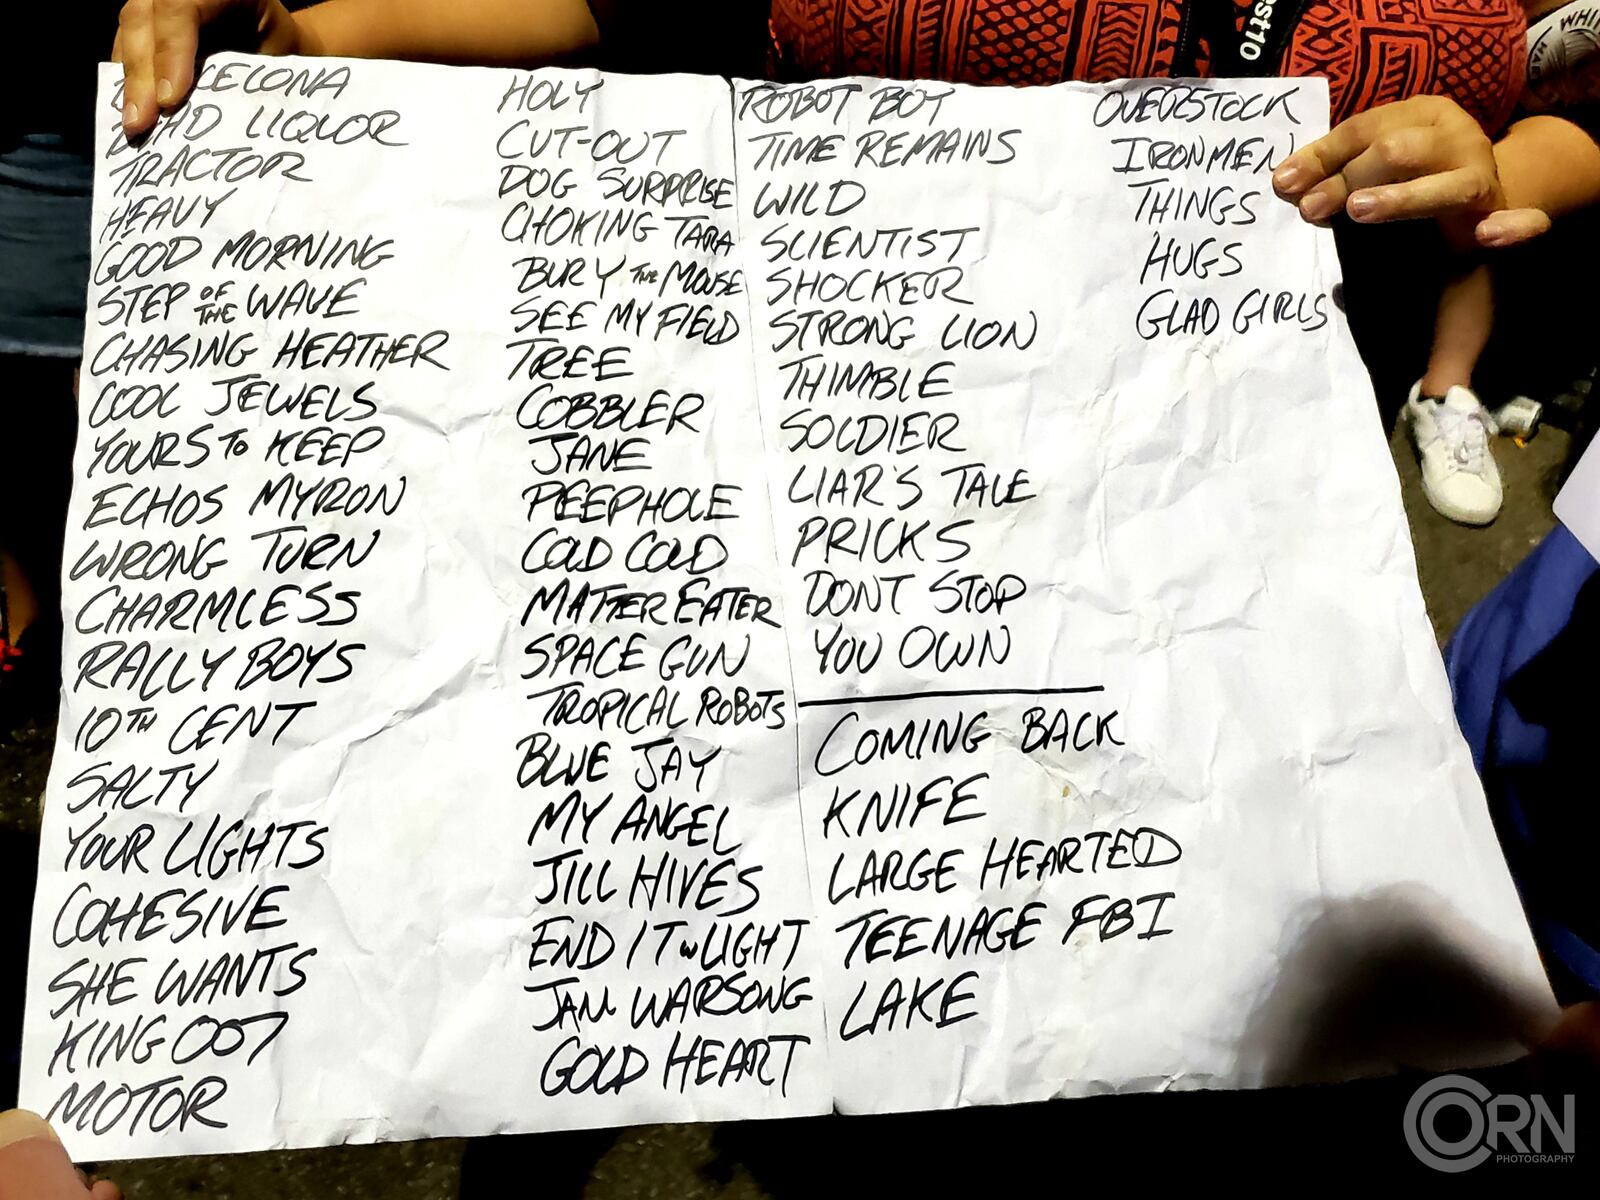 CELONA
LIQUOR
TRACTOR
HEAVY
GOOD MORNING
STEP OF THE WAVE
CHASING HEATHER
COOL JEWELS
YOURS TO KEEP
ECHOS MYRON
WRONG TURN
CHARMLESS
RALLY BOYS
10TH CENT
SALTY
YOUR LIGHTS
COHESIVE
SHE WANTS
KING 007
MOTOR
HOLY
CUT-OUT
DOG SURPRISE
CHOKING TARA
BURY THE MOUSE
SEE MY FIELD
TREE
COBBLER
JANE
PEEPHOLE
COLD COLD
MATTER EATER
SPACE GUN
TROPICAL ROBOTS
BLUE JAY
MY ANGEL
JILL HIVES
END IT w LIGHT
JAM WARSONG
GOLD HEART
ROBOT BOY
TIME REMAINS
WILD
SCIENTIST
SHOCKER
STRONG LION
THIMBLE
SOLDIER
LIAR'S TALE
PRICKS
DONT STOP
YOU OWN
COMING BACK
KNIFE
LARGE HEARTED
TEENAGE FBI
LAKE
OVERSTOCK
IRONMEN
THINGS
HUGS
GLAD GIRLS
est10
WHI
CORN
PHOTOGRAPHY